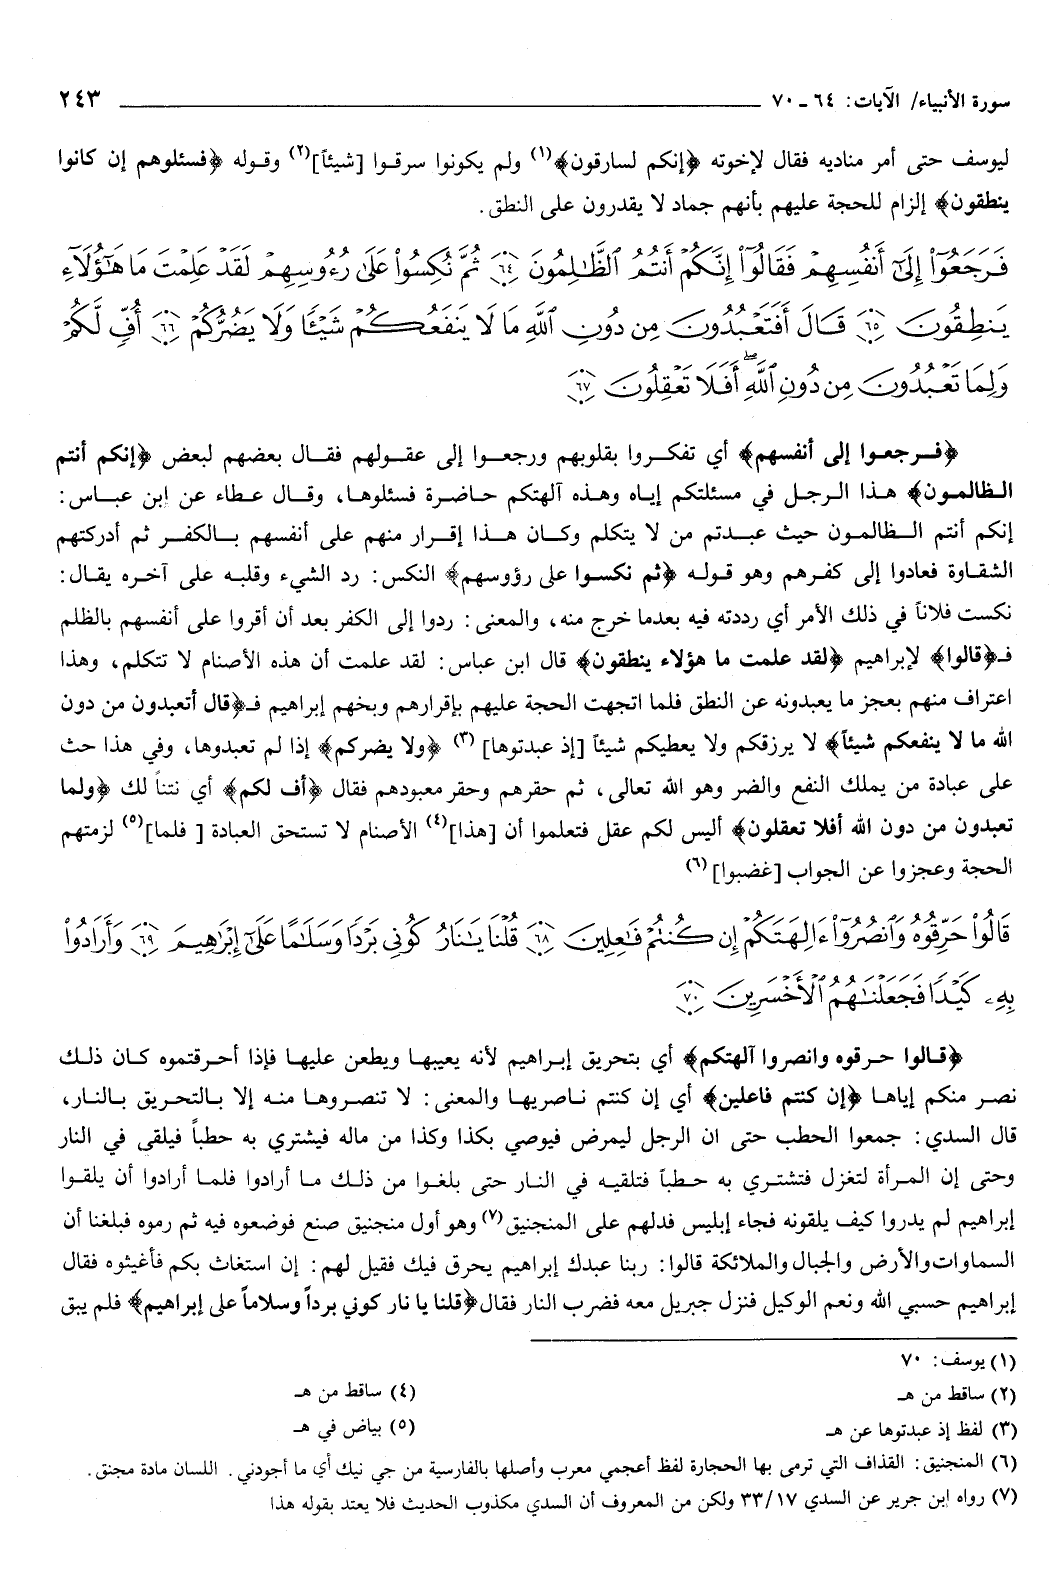 سورة الأنبياء/ الآيات: ٦٤ ـ ٧٠ ٢٤٣
ليوسف حتى أمر مناديه فقال لإخوته ﴿إنكم لسارقون﴾(١) ولم يكونوا سرقوا [شيئاً](٢) وقوله ﴿فسئلوهم إن كانوا
ينطقون﴾ إلزام للحجة عليهم بأنهم جماد لا يقدرون على النطق.
فَرَجَعُوٓا۟ إِلَىٰٓ أَنفُسِهِمْ فَقَالُوٓا۟ إِنَّكُمْ أَنتُمُ ٱلظَّٰلِمُونَ ﴿٦٤﴾ ثُمَّ نُكِسُوا۟ عَلَىٰ رُءُوسِهِمْ لَقَدْ عَلِمْتَ مَا هَٰٓؤُلَآءِ
يَنطِقُونَ ﴿٦٥﴾ قَالَ أَفَتَعْبُدُونَ مِن دُونِ ٱللَّهِ مَا لَا يَنفَعُكُمْ شَيْـًٔا وَلَا يَضُرُّكُمْ ﴿٦٦﴾ أُفٍّ لَّكُمْ
وَلِمَا تَعْبُدُونَ مِن دُونِ ٱللَّهِ ۖ أَفَلَا تَعْقِلُونَ ﴿٦٧﴾
﴿فرجعوا إلى أنفسهم﴾ أي تفكروا بقلوبهم ورجعوا إلى عقولهم فقال بعضهم لبعض ﴿إنكم أنتم
الظالمون﴾ هذا الرجل في مسئلتكم إياه وهذه آلهتكم حاضرة فسئلوها، وقال عطاء عن ابن عباس:
إنكم أنتم الظالمون حيث عبدتم من لا يتكلم وكان هذا إقرار منهم على أنفسهم بالكفر ثم أدركتهم
الشقاوة فعادوا إلى كفرهم وهو قوله ﴿ثم نكسوا على رؤوسهم﴾ النكس: رد الشيء وقلبه على آخره يقال:
نكست فلاناً في ذلك الأمر أي رددته فيه بعدما خرج منه، والمعنى: ردوا إلى الكفر بعد أن أقروا على أنفسهم بالظلم
فـ﴿قالوا﴾ لإبراهيم ﴿لقد علمت ما هؤلاء ينطقون﴾ قال ابن عباس: لقد علمت أن هذه الأصنام لا تتكلم، وهذا
اعتراف منهم بعجز ما يعبدونه عن النطق فلما اتجهت الحجة عليهم بإقرارهم وبخهم إبراهيم فـ﴿قال أتعبدون من دون
الله ما لا ينفعكم شيئاً﴾ لا يرزقكم ولا يعطيكم شيئاً [إذ عبدتوها] (٣) ﴿ولا يضركم﴾ إذا لم تعبدوها، وفي هذا حث
على عبادة من يملك النفع والضر وهو الله تعالى، ثم حقرهم وحقر معبودهم فقال ﴿أف لكم﴾ أي نتناً لك ﴿ولما
تعبدون من دون الله أفلا تعقلون﴾ أليس لكم عقل فتعلموا أن [هذا](٤) الأصنام لا تستحق العبادة [ فلما](٥) لزمتهم
الحجة وعجزوا عن الجواب [غضبوا] (٦)
قَالُوا۟ حَرِّقُوهُ وَٱنصُرُوٓا۟ ءَالِهَتَكُمْ إِن كُنتُمْ فَٰعِلِينَ ﴿٦٨﴾ قُلْنَا يَٰنَارُ كُونِى بَرْدًا وَسَلَٰمًا عَلَىٰٓ إِبْرَٰهِيمَ ﴿٦٩﴾ وَأَرَادُوا۟
بِهِۦ كَيْدًا فَجَعَلْنَٰهُمُ ٱلْأَخْسَرِينَ ﴿٧٠﴾
﴿قالوا حرقوه وانصروا آلهتكم﴾ أي بتحريق إبراهيم لأنه يعيبها ويطعن عليها فإذا أحرقتموه كان ذلك
نصر منكم إياها ﴿إن كنتم فاعلين﴾ أي إن كنتم ناصريها والمعنى: لا تنصروها منه إلا بالتحريق بالنار،
قال السدي: جمعوا الحطب حتى ان الرجل ليمرض فيوصي بكذا وكذا من ماله فيشتري به حطباً فيلقى في النار
وحتى إن المرأة لتغزل فتشتري به حطباً فتلقيه في النار حتى بلغوا من ذلك ما أرادوا فلما أرادوا أن يلقوا
إبراهيم لم يدروا كيف يلقونه فجاء إبليس فدلهم على المنجنيق(٧) وهو أول منجنيق صنع فوضعوه فيه ثم رموه فبلغنا أن
السماوات والأرض والجبال والملائكة قالوا: ربنا عبدك إبراهيم يحرق فيك فقيل لهم: إن استغاث بكم فأغيثوه فقال
إبراهيم حسبي الله ونعم الوكيل فنزل جبريل معه فضرب النار فقال﴿قلنا يا نار كوني برداً وسلاماً على إبراهيم﴾ فلم يبق
(١) يوسف: ٧٠
(٢) ساقط من هـ
(٣) لفظ إذ عبدتوها عن هـ
(٤) ساقط من هـ
(٥) بياض في هـ
(٦) المنجنيق: القذاف التي ترمى بها الحجارة لفظ أعجمي معرب وأصلها بالفارسية من جي نيك أي ما أجودني. اللسان مادة مجنق.
(٧) رواه ابن جرير عن السدي ٣٣/١٧ ولكن من المعروف أن السدي مكذوب الحديث فلا يعتد بقوله هذا